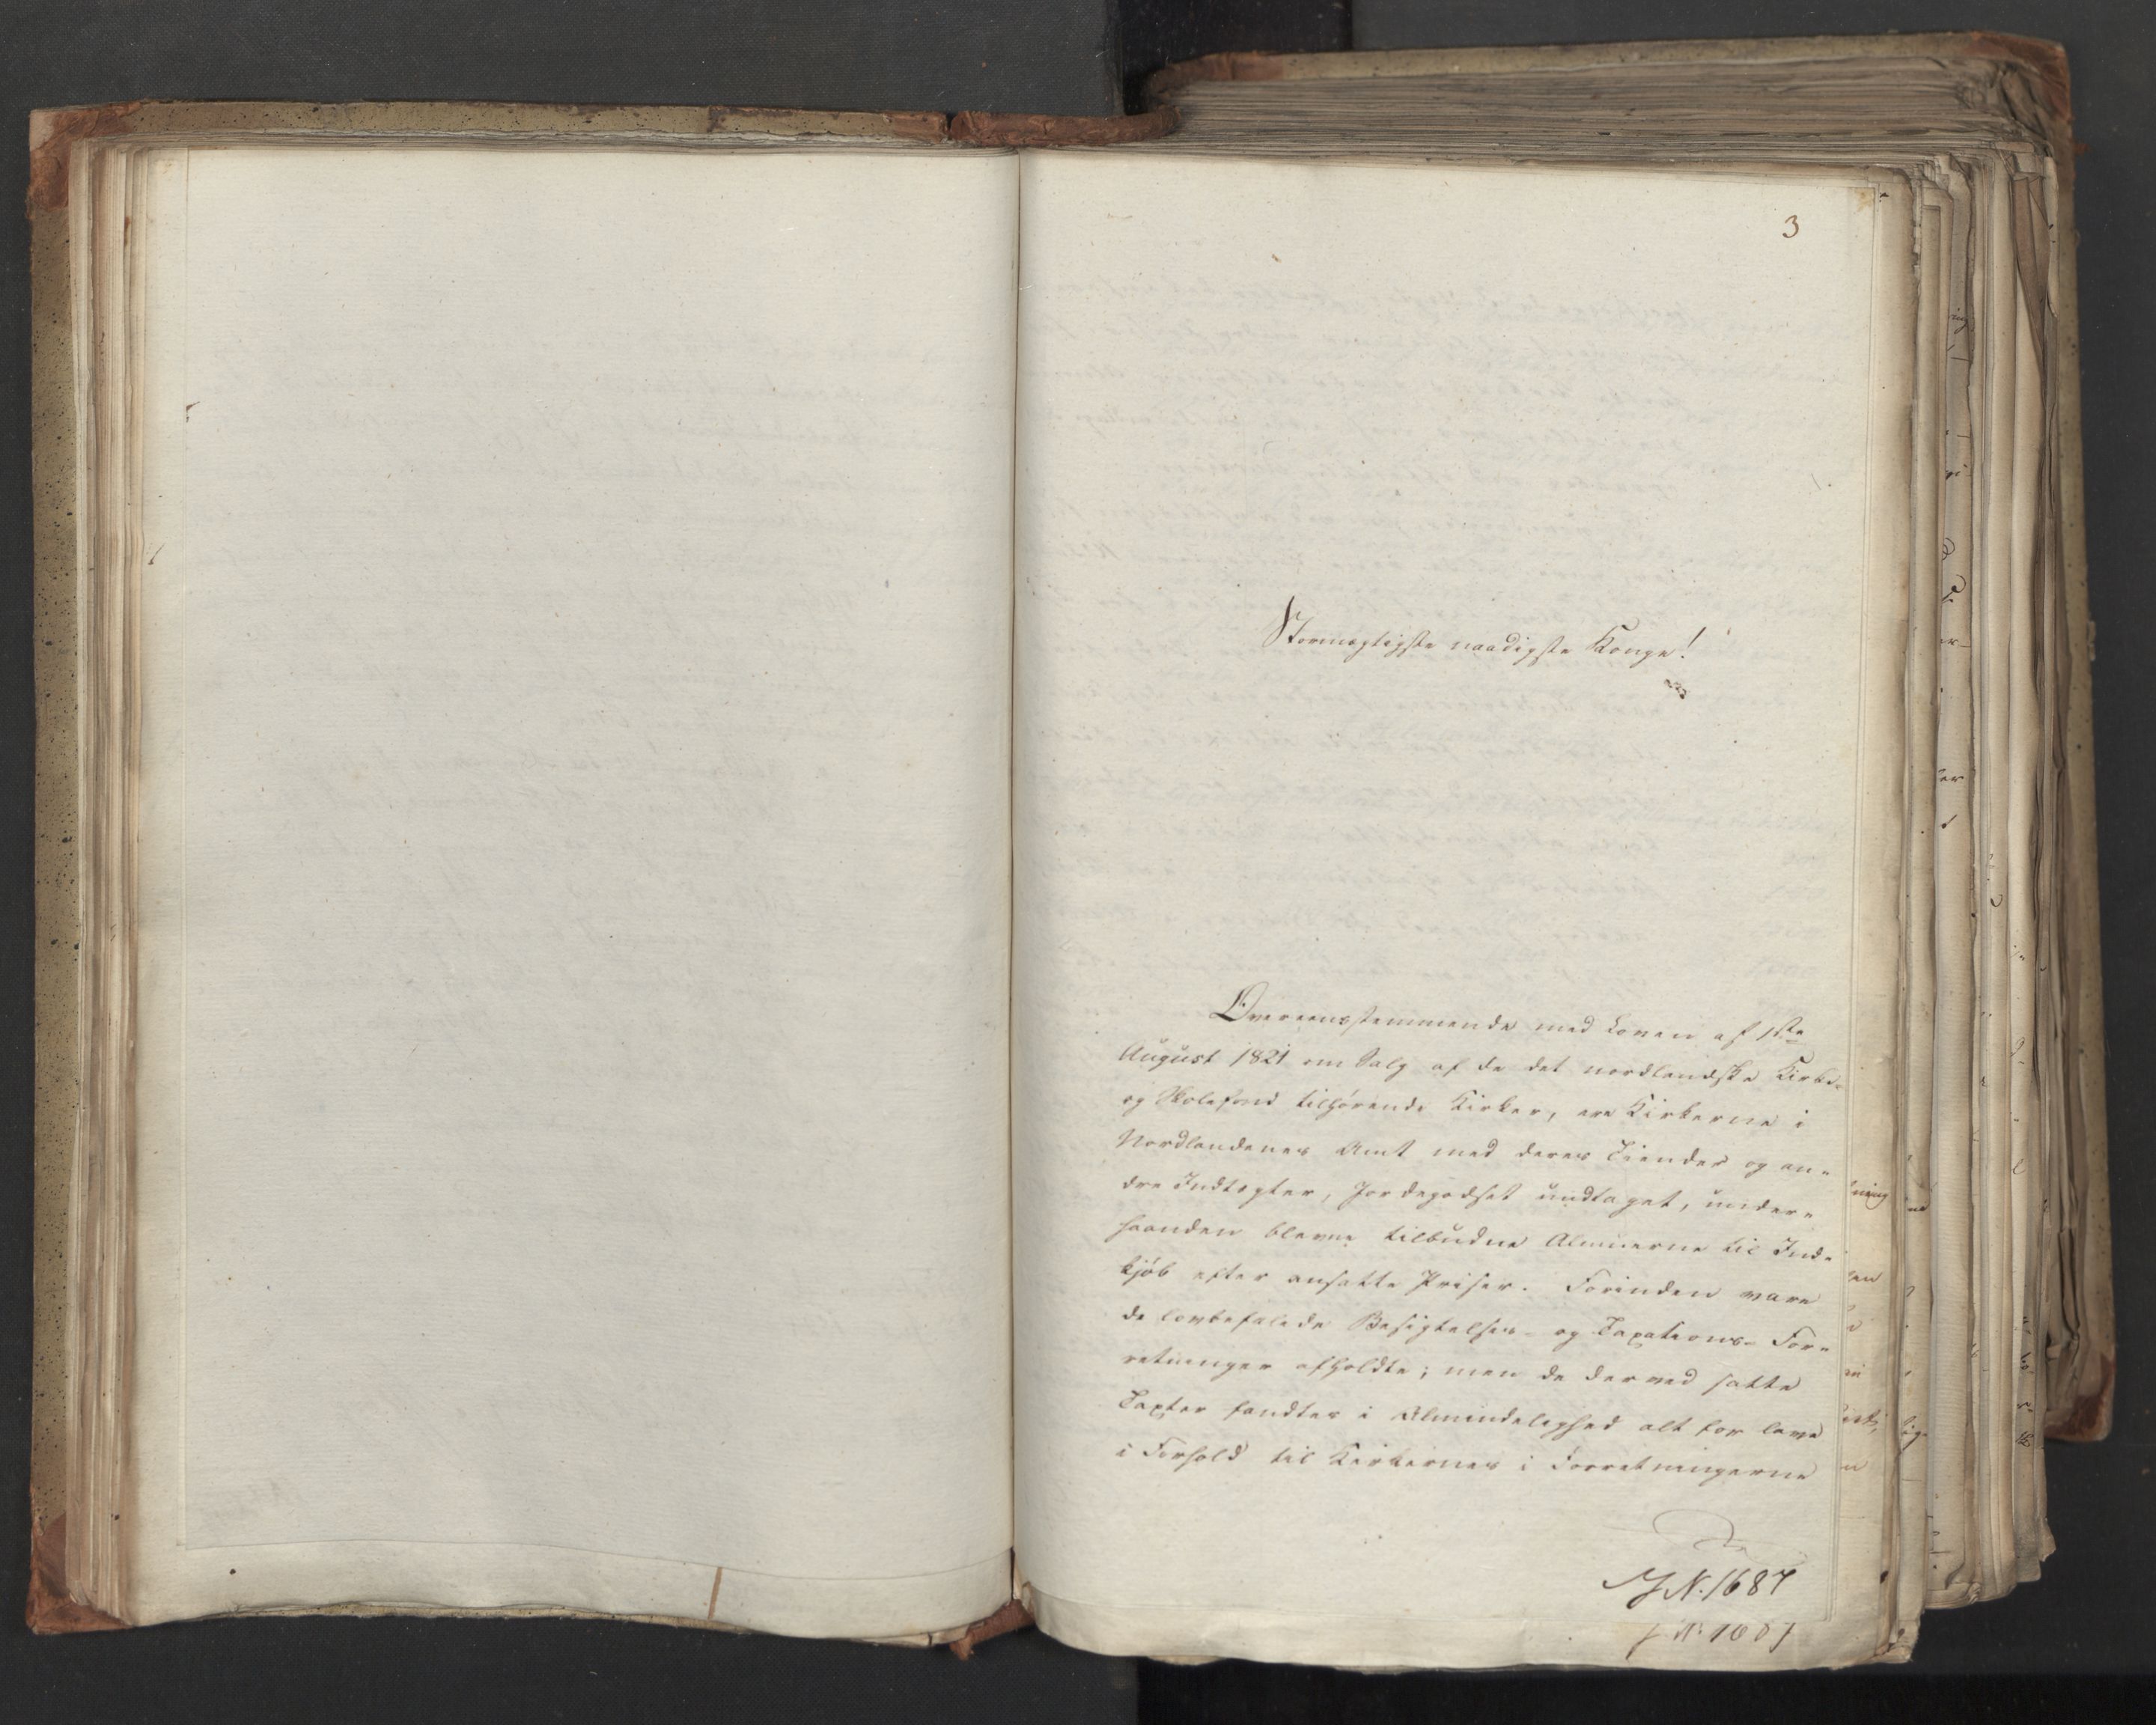 3
Stormægtigste naadigste Konge!
Overeensstemmende med Loven af 1ste
August 1821 om Salg af de det nordlandske Kirke-
og Skolefond tilhørende Kirker, ere Kirkerne i
Nordlandenes Amt med deres Tiender og an-
dre Indtægter, Jordegodset undtaget, under-
haanden blevne tilbudne Almuerne til Ind-
kjöb efter ansatte Priser. Forinden vare
de lovbefalede Besigtelses- og Taxations-For-
retninger afholdte; men de derved satte
Taxter fandtes i Almindelighed alt for lave
i Forhold til Kirkernes i Forretningerne
J N. 1687